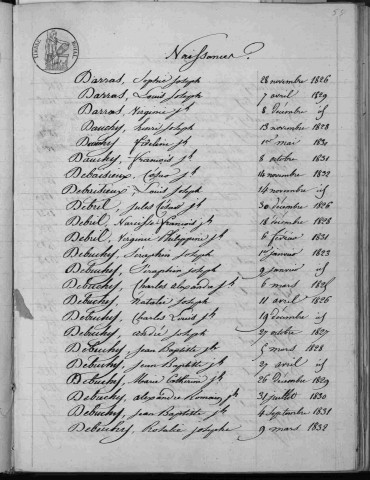 Naissances.
Darras, Sophie Joseph 28 novembre 1826
Darras, Louis Joseph 7 avril 1829
Darras, Virginie Jh 8 Décembre id
Dauchy, henri Joseph 13 novembre 1828
Dauchy, fideline Jh 1er mai 1830
Dauchy, François Jh 8 octobre 1831
Debaisieux, Jh 14 novembre 1832
Debaisieux, Louis Joseph 14 novembre id
Debril, Jules 30 décembre 1826
Debril, Narcisse François Jh 18 décembre 1828
Debril, Virginie Philippine Jh 6 février 1831
Debuchy, Séraphin Joseph 1er janvier 1823
Debuchy, Séraphin Joseph 9 janvier id
Debuchy, Charles alexandre Jh 6 mars
Debuchy, Natalie Joseph 11 avril 1826
Debuchy, Charles Louis Jh 19 décembre id
Debuchy, Joseph 27 octobre 1827
Debuchy, Jean Baptiste Jh 5 mars 1828
Debuchy, Jean Baptiste Jh 27 avril id
Debuchy, Marie Catherine Jh 26 Décembre 1829
Debuchy, alexandre Romain Jh 31 juillet 1830
Debuchy, Jean Baptiste Jh 4 Septembre 1831
Debuchy, Rosalie Josephe 9 mars 1832